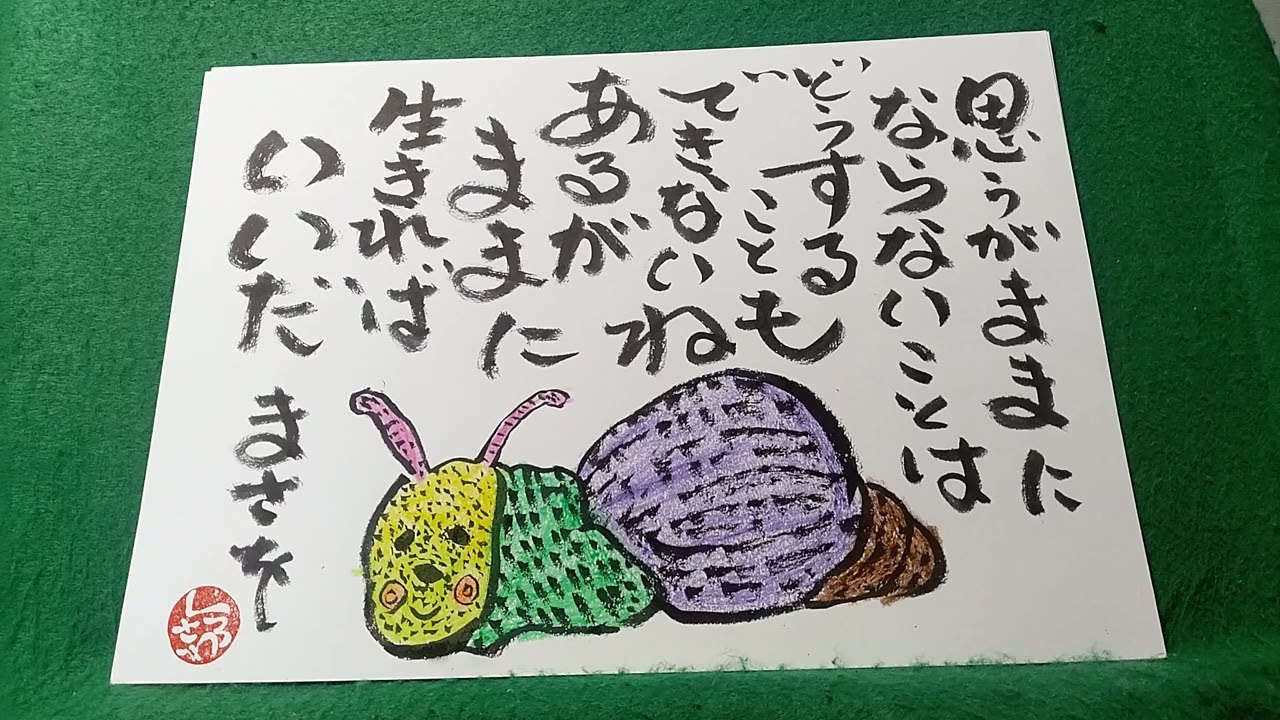 思うがままに
ならないことは
どうする
ことも
できないね
あるが
ままに
生きれば
いいだ
まさを